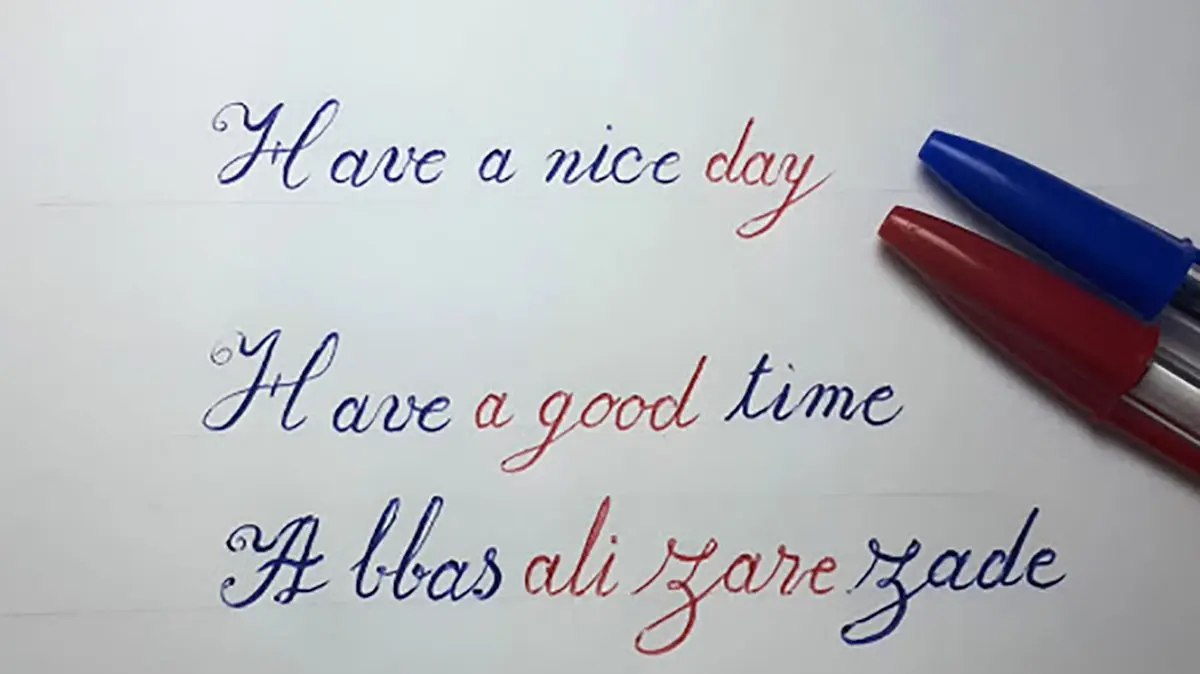 Have a nice day
Have a good time
Abbas ali zare zade